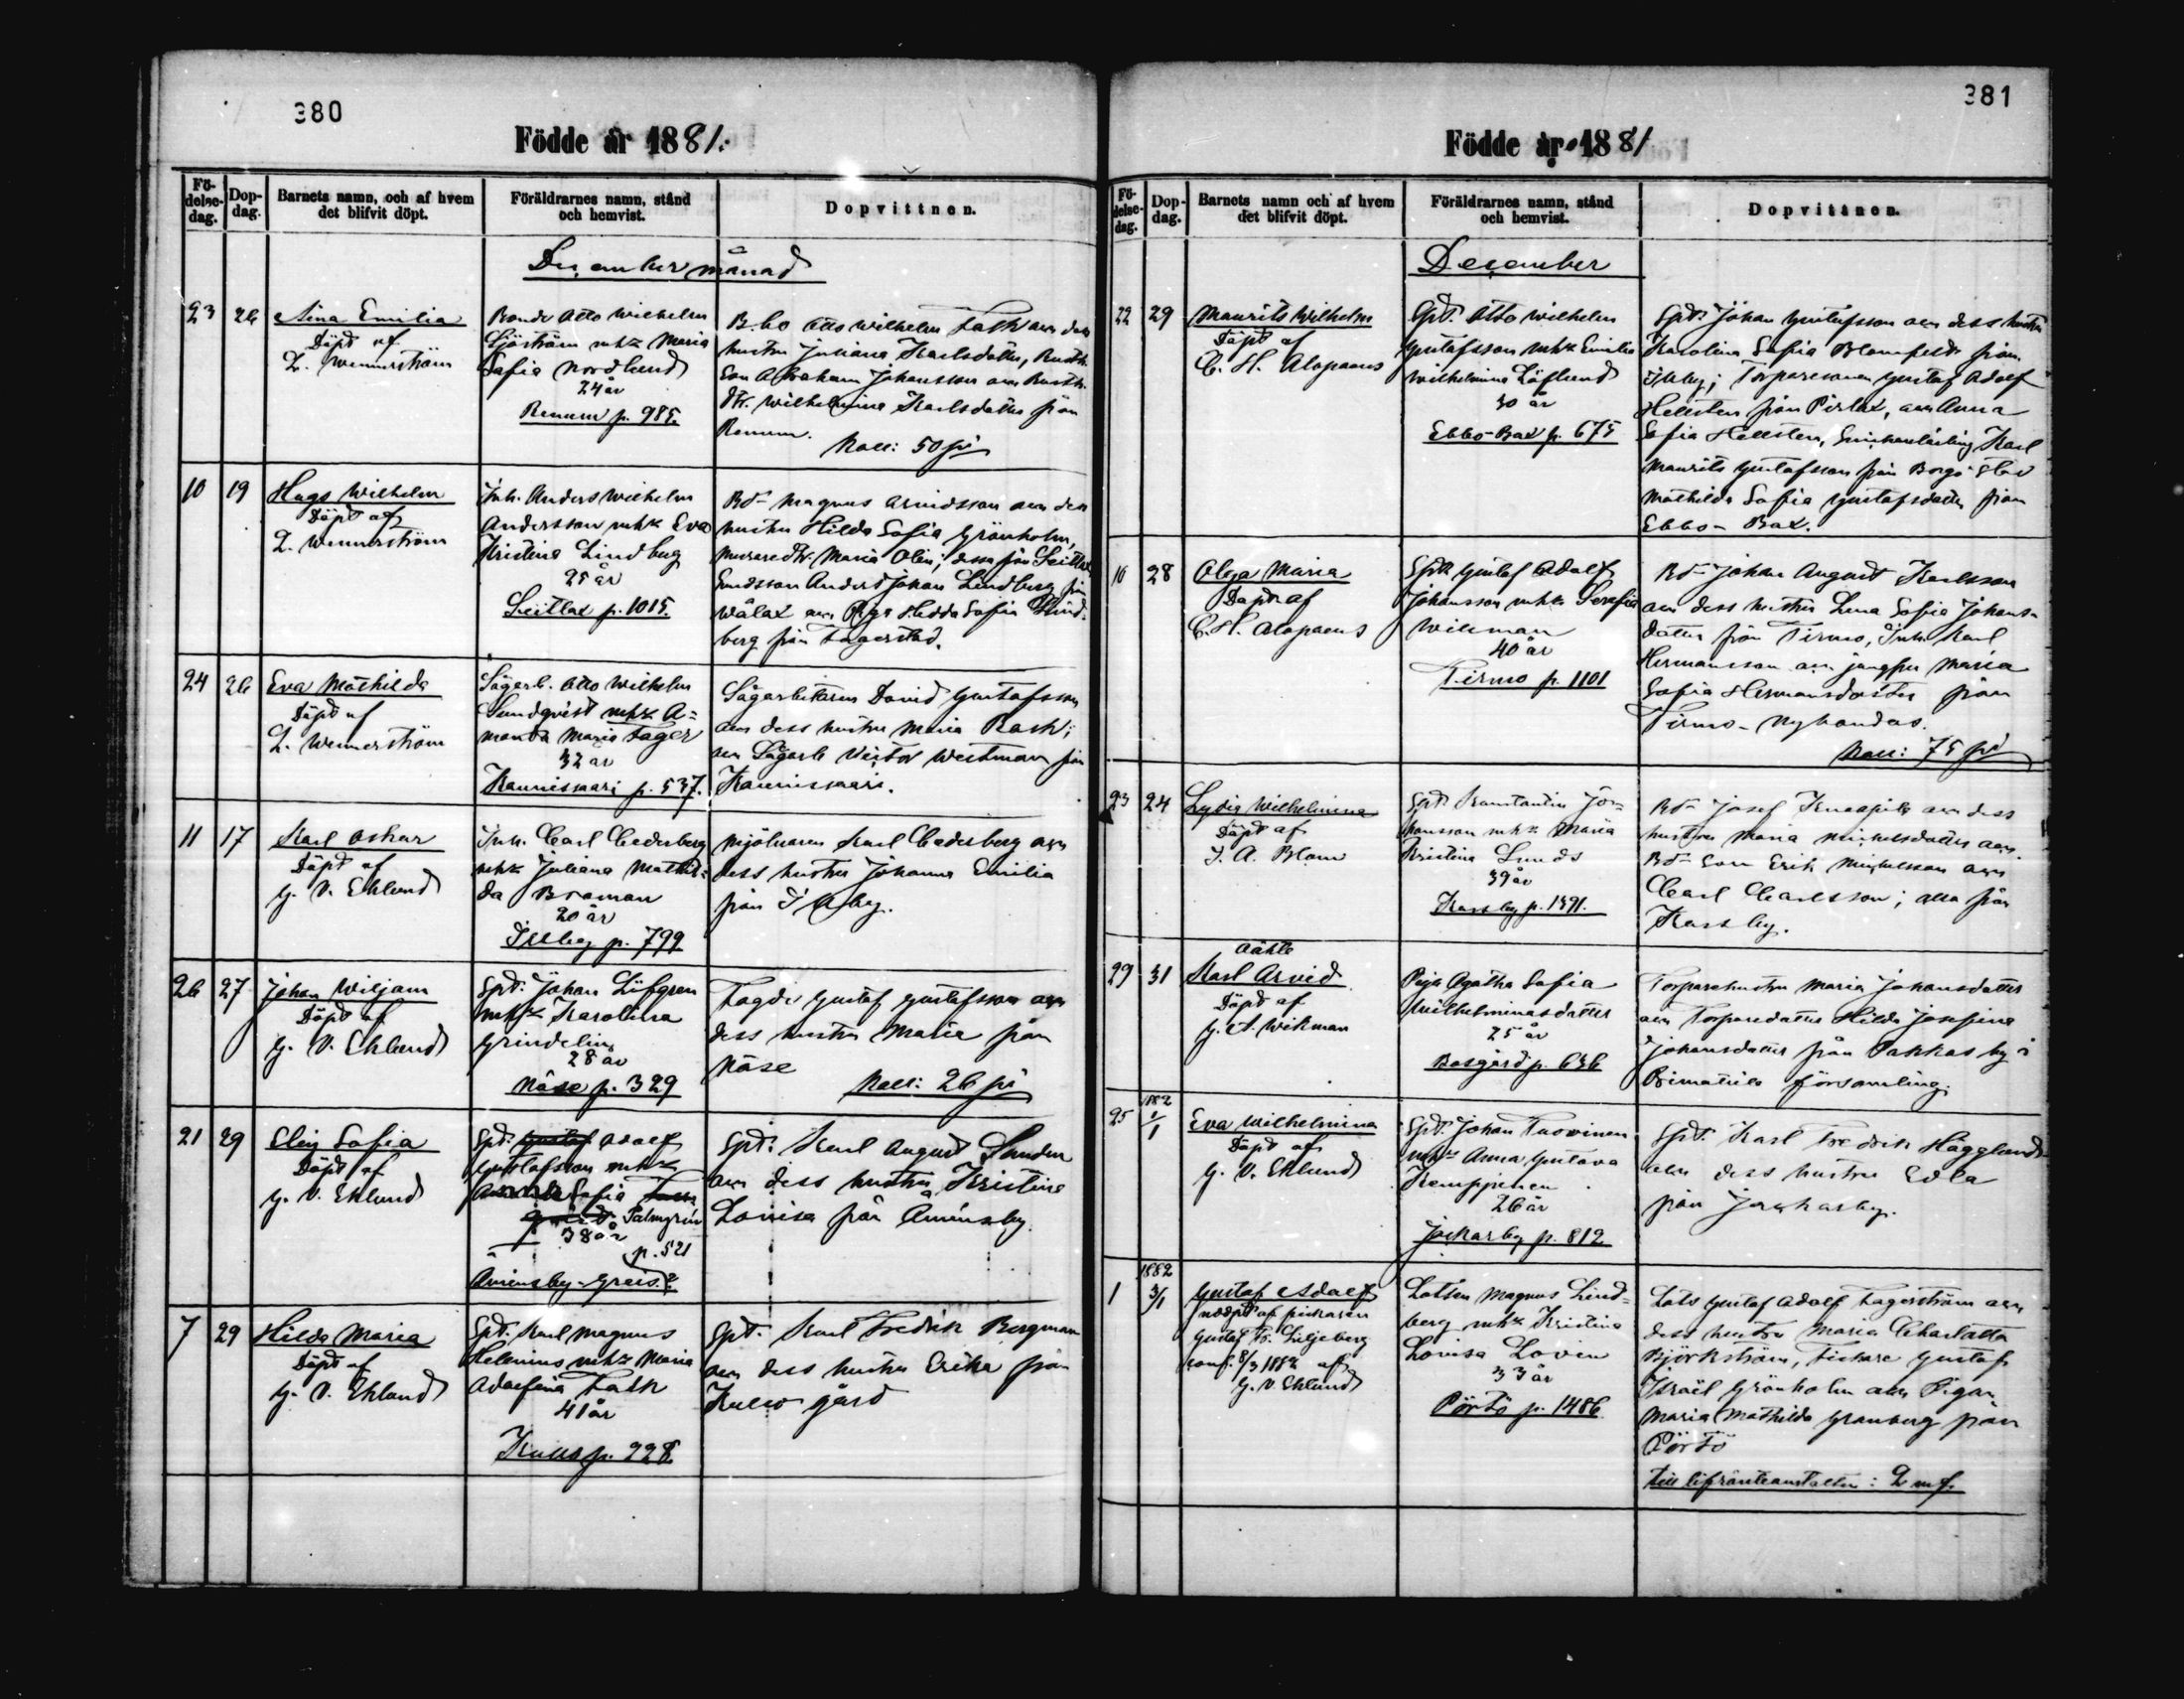 380
Födde år 1881.
Fö-
delse-
dag.
Dop-
dag.
Barnets namn, och af hvem
det blifvit döpt.
Föräldrarnes namn, stånd
och hemvist.
Dopvittnen.
December månad
23
26
Aina Emilia
Döpt af
L. Wennerström
Bonde Otto Wilhelm
Sjöström m. h. Maria
Sofia Nordlund
24 år
Renum p. 985.
Otto Wilhelm
hustru Juliana Karlsdotter,
son Abraham Johansson
Wilhelmina Karlsdotter från
Renum.
Koll: 50 pi
10
19
Hugo Wilhelm
Döpt af
L. Wennerström
Inh. Anders Wilhelm
Andersson m. h. Eva
Kristina Lindberg
25 år
Seitlax p. 1015.
Magnus
hustru Hilda Sofia Grönholm,
Maria Olin; dessa från Seitlax
Anders Johan Lindberg från
Wålax Hedda Sofia Lind-
berg från Fagerstad.
24
26
Eva Mathilda
Döpt af
L. Wennerström
Sågarb. Otto Wilhelm
Sundqvist m. h. A-
manda Maria Fager
32 år
Kaunissaari p. 537.
Sågarbetaren David Gustafsson
och dess hustru Maria Rask;
och Sågarb. Viktor Westman från
Kaunissaari.
11
17
Karl Oskar
Döpt af
G. V. Eklund
Inh. Carl Cederberg
m. h. Juliana Mathil-
da Broman
20 år
Illby p. 799
Mjölnaren Karl Cederberg och
dess hustru Johanna Emilia
från Illby.
26
27
Johan Wiljam
Döpt af
G. V. Eklund
Spt. Johan Löfgren
m. h. Karolina
Grindelin
28 år
Näse p. 329
Gustaf Gustafsson och
dess hustru Maria från
Näse
Koll: 26 pi
21
29
Elin Sofia
Döpt af
G. V. Eklund
Spt. Gustaf Adolf
Gustafsson m. h.
Sofia
Palmgrén
38 år
p. 521
Åminsby-Greis.
Spt. Karl August
och dess hustru Kristina
Lovisa från Åminsby.
7
29
Hilda Maria
Döpt af
G. V. Eklund
Spt. Karl Magnus
Helenius m. h. Maria
Adolfina Falk
41 år
Kullo p. 228
Spt. Karl Fredrik Bergman
och dess hustru Erika från
Kullo gård
381
Födde år 1881
Fö-
delse-
dag.
Dop-
dag.
Barnets namn och af hvem
det blifvit döpt.
Föräldrarnes namn, stånd
och hemvist.
Dopvittnen.
December
22
29
Maurits Wilhelm
Döpt af
C. H. Alopaeus
Spt. Otto Wilhelm
Gustafsson m. h. Emilia
Wilhelmina Löflund
30 år
Ebbo-Bax p. 675
Spt. Johan Gustafsson och dess hustru
Karolina Sofia Blomfelt från
Illby; Torparesonen Gustaf Adolf
Hellsten från Pirlax, och Anna
Sofia Hellsten, Karl
Maurits Gustafsson från Borgå stad
Mathilda Sofia Gustafsdotter från
Ebbo-Bax.
16
28
Olga Maria
Döpt af
C. H. Alopaeus
Spt. Gustaf Adolf
Johansson m. h. Serafia
Wikman
40 år
Tirmo p. 1101
Johan August Karlsson
och dess hustru Lena Sofia Johans-
dotter från Tirmo, Inh. Karl
Hermansson och jungfru Maria
Sofia Hermansdotter från
Tirmo-Nybondas.
Koll: 75 pi
23
24
Lydia Wilhelmina
Döpt af
J. A. Blom
Spt. Konstantin Jo-
hansson m. h. Maria
Kristina Lunds
39 år
Karsby p. 1391.
Josef och dess
hustru Maria Mickelsdotter och
son Erik Mickelsson och
Carl Carlsson; alla från
Karsby.
29
31
Oäkta
Karl Arvid
Döpt af
G. A. Wikman
Piga Agatha Sofia
Wilhelminasdotter
25 år
Bosgård p. 636
Torparehustru Maria Johansdotter
och Torparedotter Hilda Josefina
Johansdotter från Pakkasby i
församling.
25
1882
1/1
Eva Wilhelmina
Döpt af
G. V. Eklund
Spt. Johan Tuovinen
m. h. Anna Gustava
Kemppinen
26 år
Jackarby p. 812
Spt. Karl Fredrik Hägglund
och dess hustru Edla
från Jackarby.
1
1882
3/1
Gustaf Adolf
nödpt af fiskaren
Gustaf Fr. Liljeberg
conf. 8/3 1882 af
G. V. Eklund
Lotsen Magnus Lind-
berg m. h. Kristina
Lovisa Lovén
33 år
Pörtö p. 1486
Lots Gustaf Adolf Fagerström och
dess hustru Maria Charlotta
Björkström, Fiskare Gustaf
Israël Grönholm och Pigan
Maria Mathilda Granberg från
Pörtö
till lifränteanstalten: 2 mf.